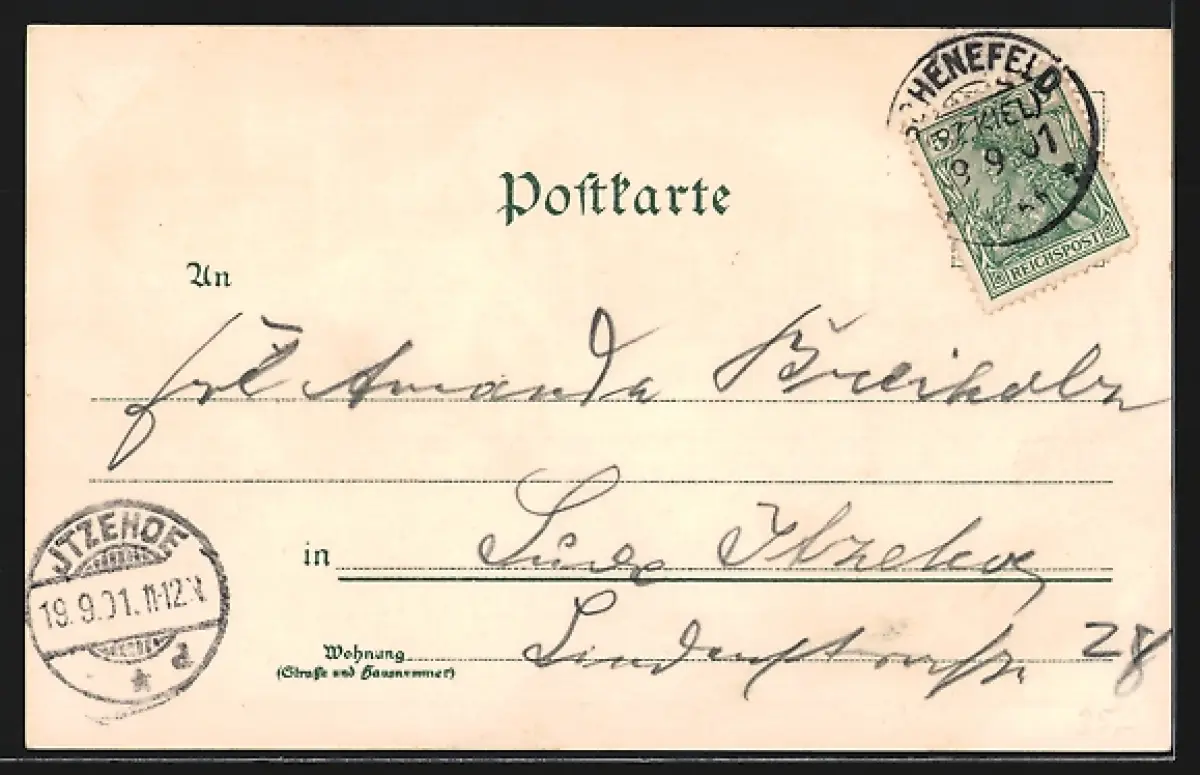 SCHENEFELD
(BZ KIEL)
9 01
REICHSPOST
Postkarte
An
Frl Amanda Breiholz
in Sude Itzehoe
Wohnung Lindenstrasse 28
(Straße und Hausnummer)
ITZEHOE
19.9.01.11-12.V
d